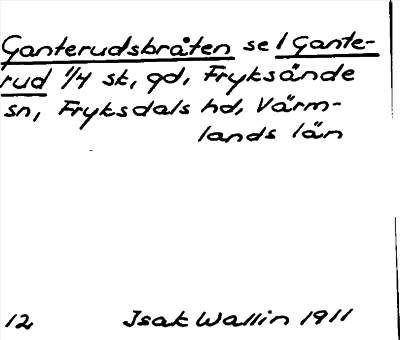 Ganterudsbråten se 1 Gante-
rud 1/4 sk, gd, Fryksände
sn, Fryksdals hd, Värm-
lands län
12 Isak Wallin 1911